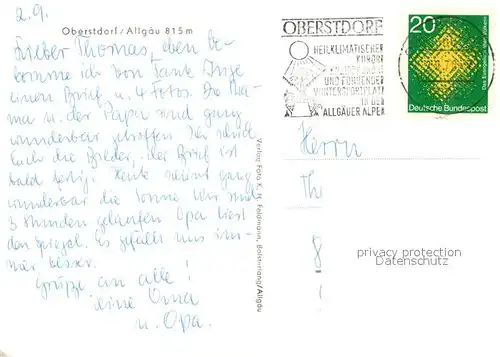 2.9.
Oberstdorf/Allgäu 815m
Lieber Thomas, eben be-
komme ich von Tante Inge
einen Brief u. 4 Fotos. Die Ma-
ma u. der Papa sind ganz
wunderbar getroffen. Ich schick
Euch die Bilder, der Brief ist
bald fertig. Heute scheint ganz
wunderbar die Sonne. Wir sind
3 Stunden gelaufen. Opa liest
den Spiegel. Es gefällt uns im-
mer besser.
Grüße an alle!
Deine Oma
u. Opa.
Verlag Foto K. H. Feldmann, Bolsterlang/Allgäu
OBERSTDORF
HEILKLIMATISCHER
KURORT
UND FÜHRENDER
WINTERSPORTPLATZ
IN DEN
ALLGÄUER ALPEN
20
Deutsche Bundespost
Herrn
Th
8
privacy protection
Datenschutz